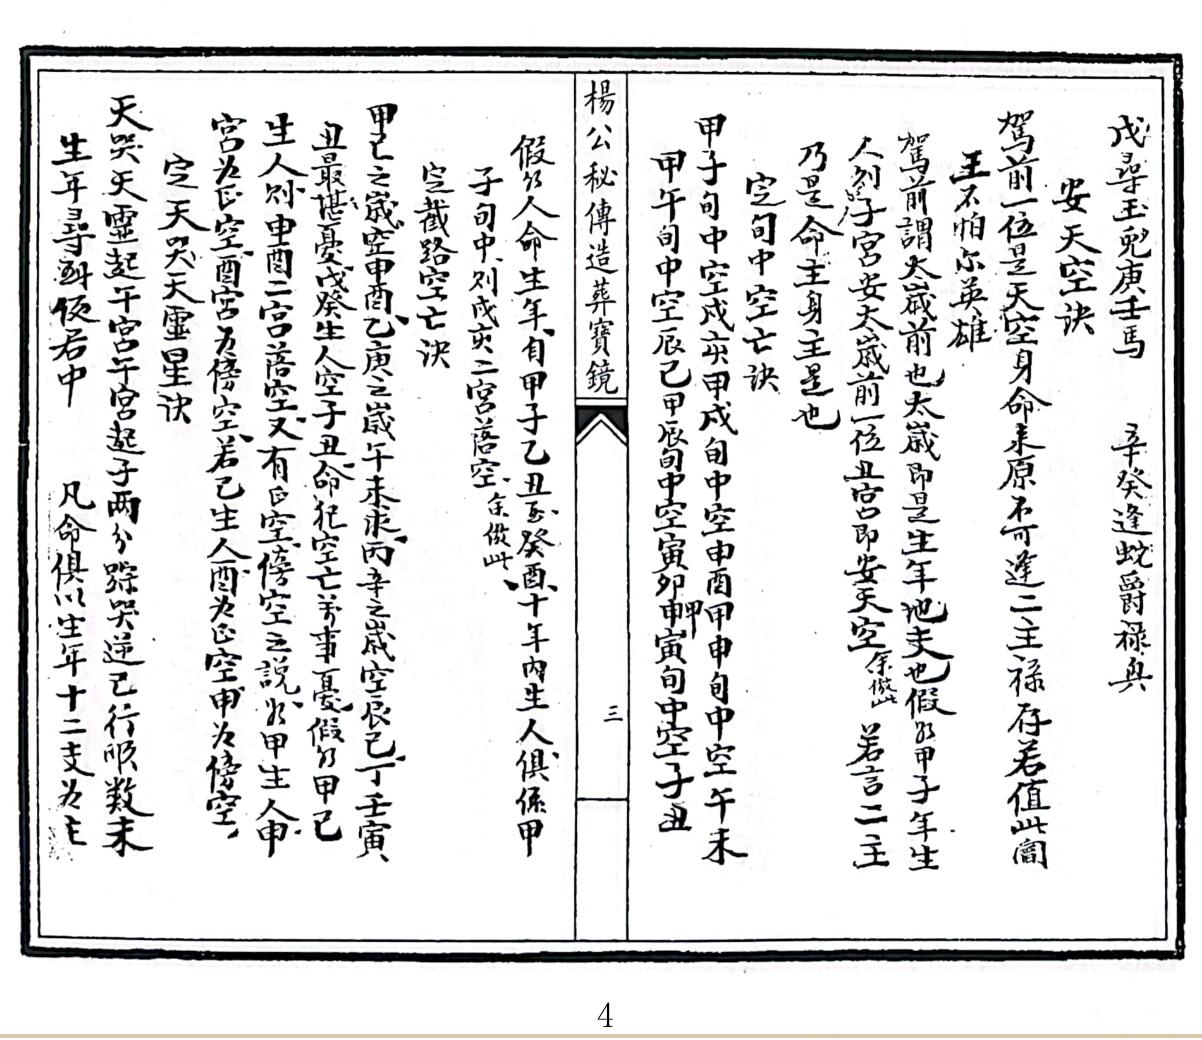 戊尋玉兔庚壬馬　辛癸逢蛇爵祿與
安天空訣
駕前一位是天空身命未原不可逢二主祿存若值此閻
王不怕尔英雄
駕前謂太歲前也太歲即是生年地支也假如甲子年生
人則子宮安太歲前一位丑宮即安天空余倣此若言二主
乃是命主身主是也
定旬中空亡訣
甲子旬中空戍亥甲戍旬中空申酉甲申旬中空午未
甲午旬中空辰巳甲辰旬中空寅卯甲寅旬中空子丑
楊公秘傳造葬寶鏡
三
假如人命生年自甲子乙丑至癸酉十年內生人俱係甲
子旬中則戍亥二宮落空余倣此
定截路空亡訣
甲己之歲空申酉乙庚之歲午未求丙辛之歲空辰巳丁壬寅
丑最堪憂戊癸生人空子丑命犯空亡萬事憂假如甲己
生人則申酉二宮落空又有正空傍空之說如甲生人申
宮為正空酉宮為傍空若己生人酉為正空甲為傍空
定天哭天虛星訣
天哭天虛起午宮午宮起子两分踪哭逆巳行順数未
生年尋到便若中　凡命俱以生年十二支為主
4